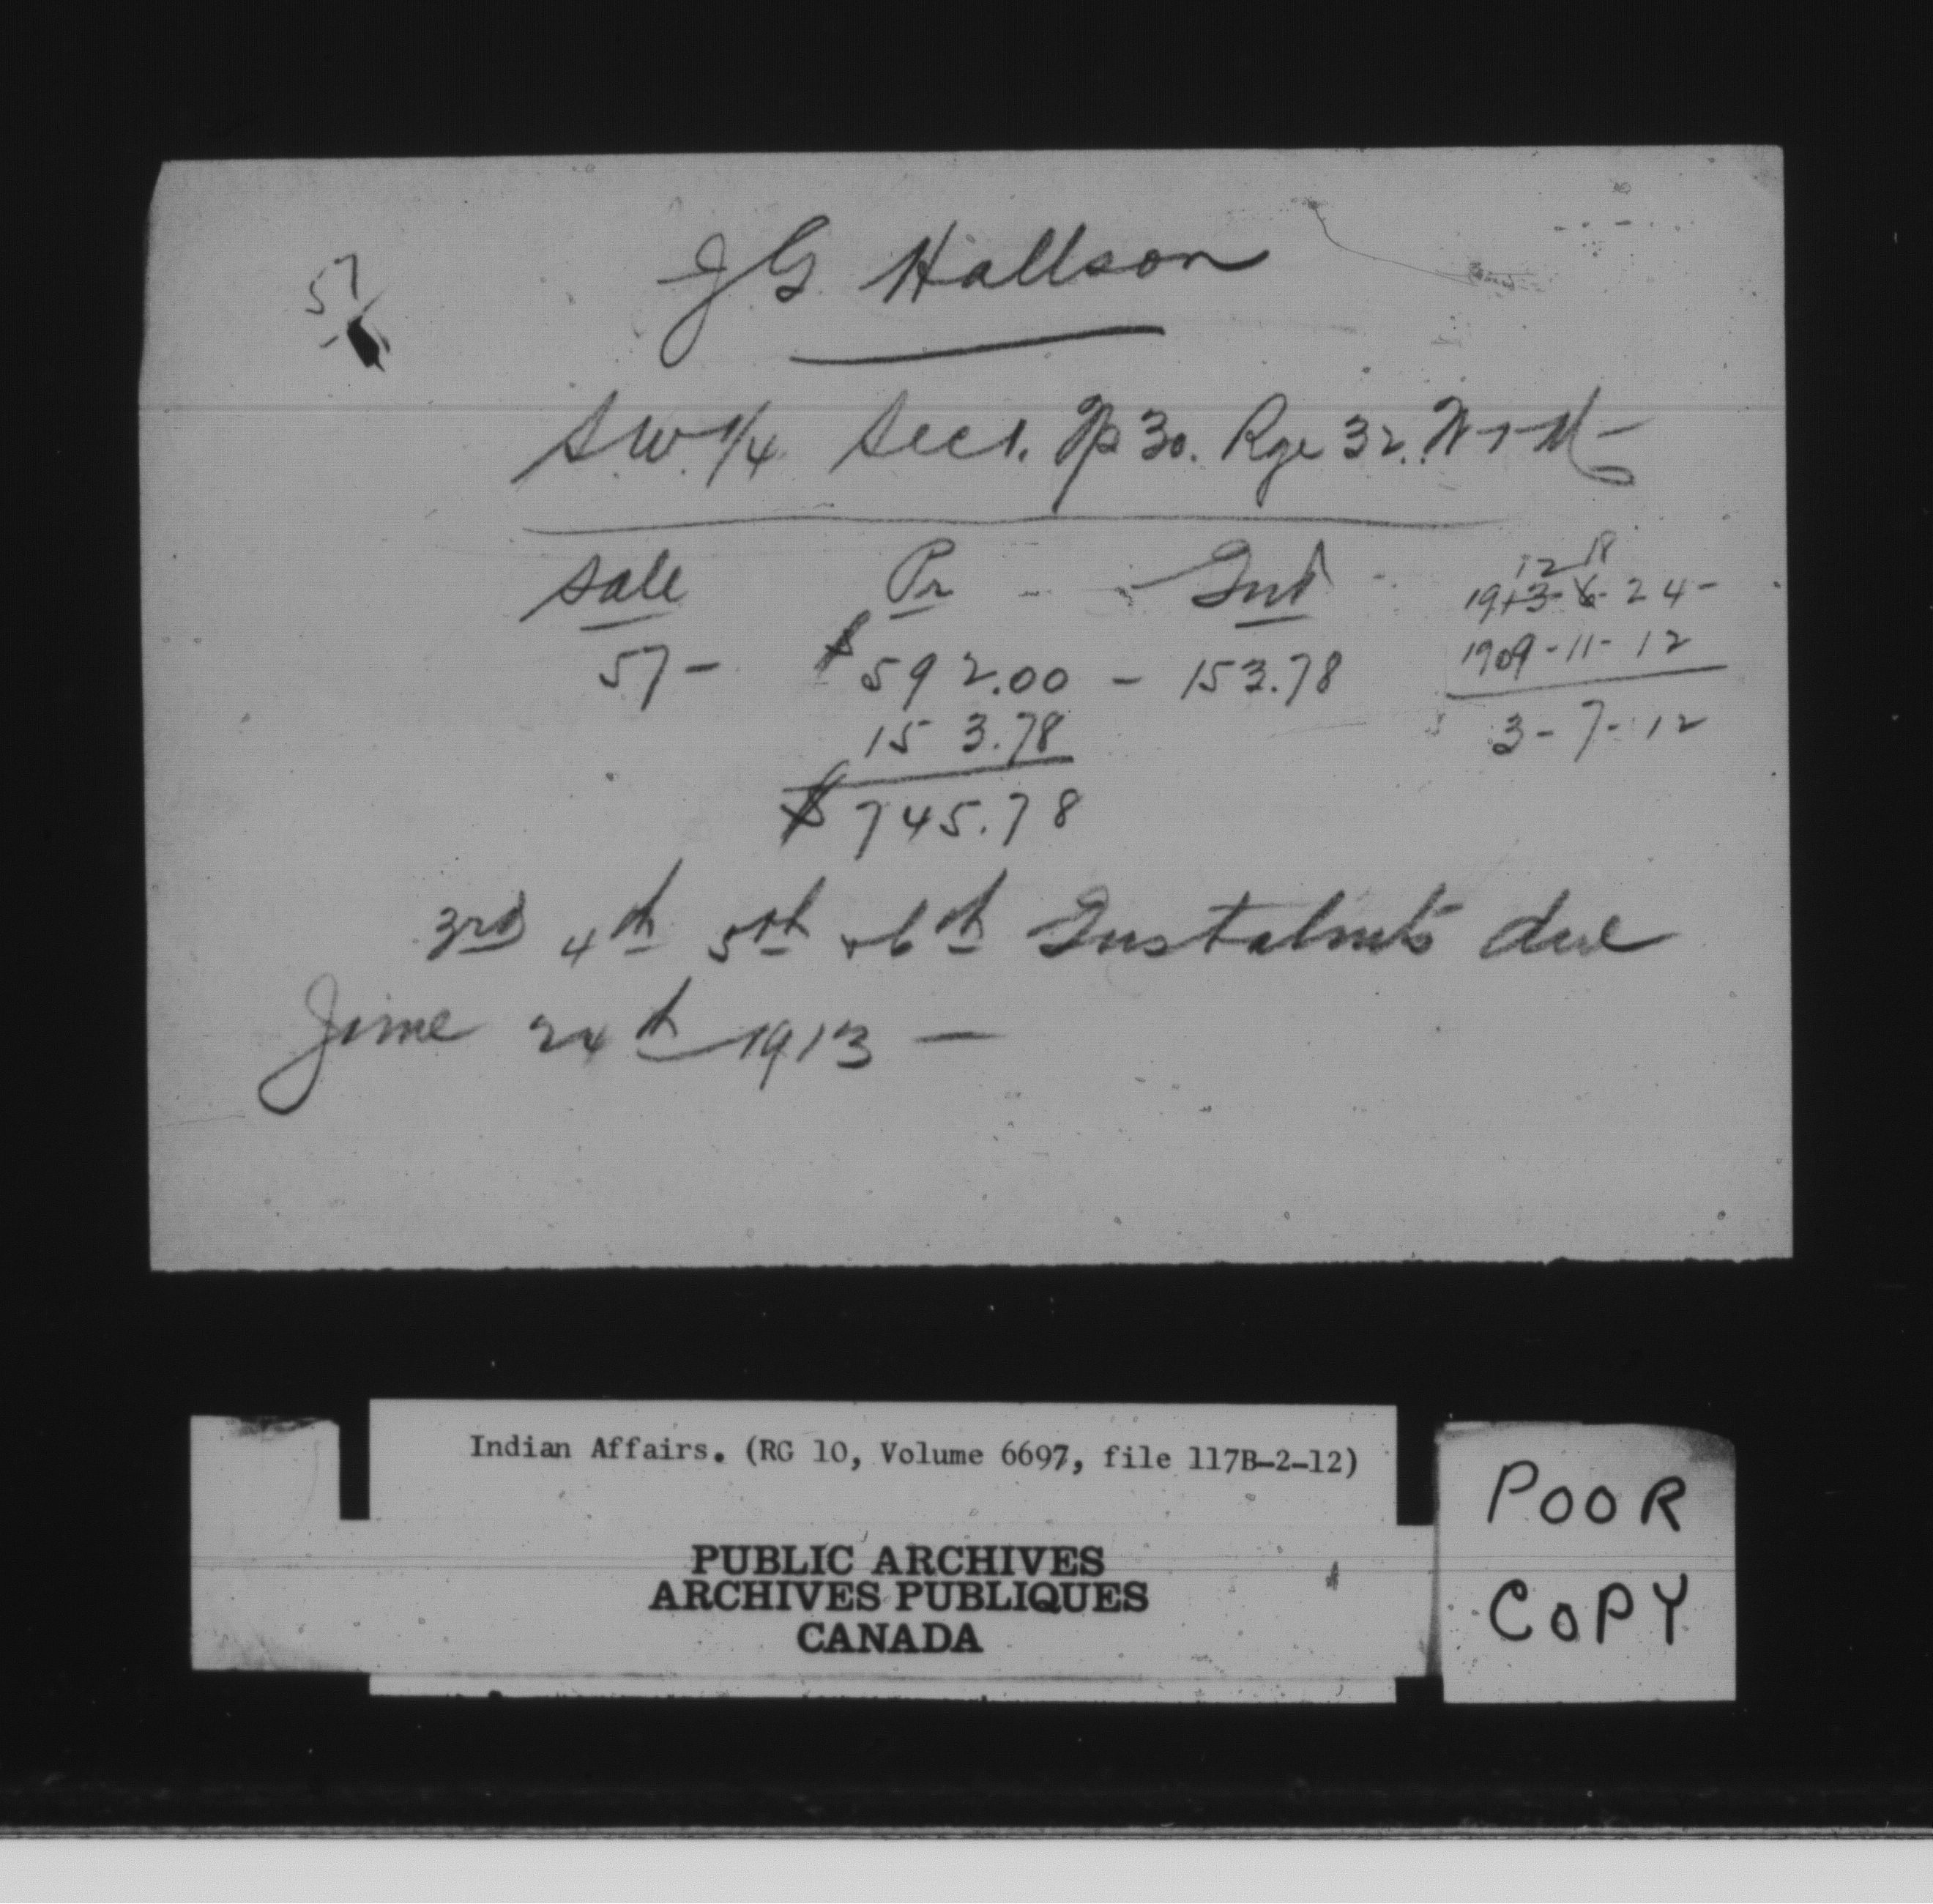 57
J G Hallson
S.W. 1/4 Sec 1. Tp 30. Rge 32. W-1-M-
Sale Pr Int
12 18
1913-6-24-
57- $592.00 - 153.78
1909-11-12
153.78
3-7-12
$745.78
3rd 4th 5th & 6th Instalmts due
June 24th 1913 —
Indian Affairs. (RG 10, Volume 6697, file 117B-2-12)
PUBLIC ARCHIVES
ARCHIVES PUBLIQUES
CANADA
POOR
COPY